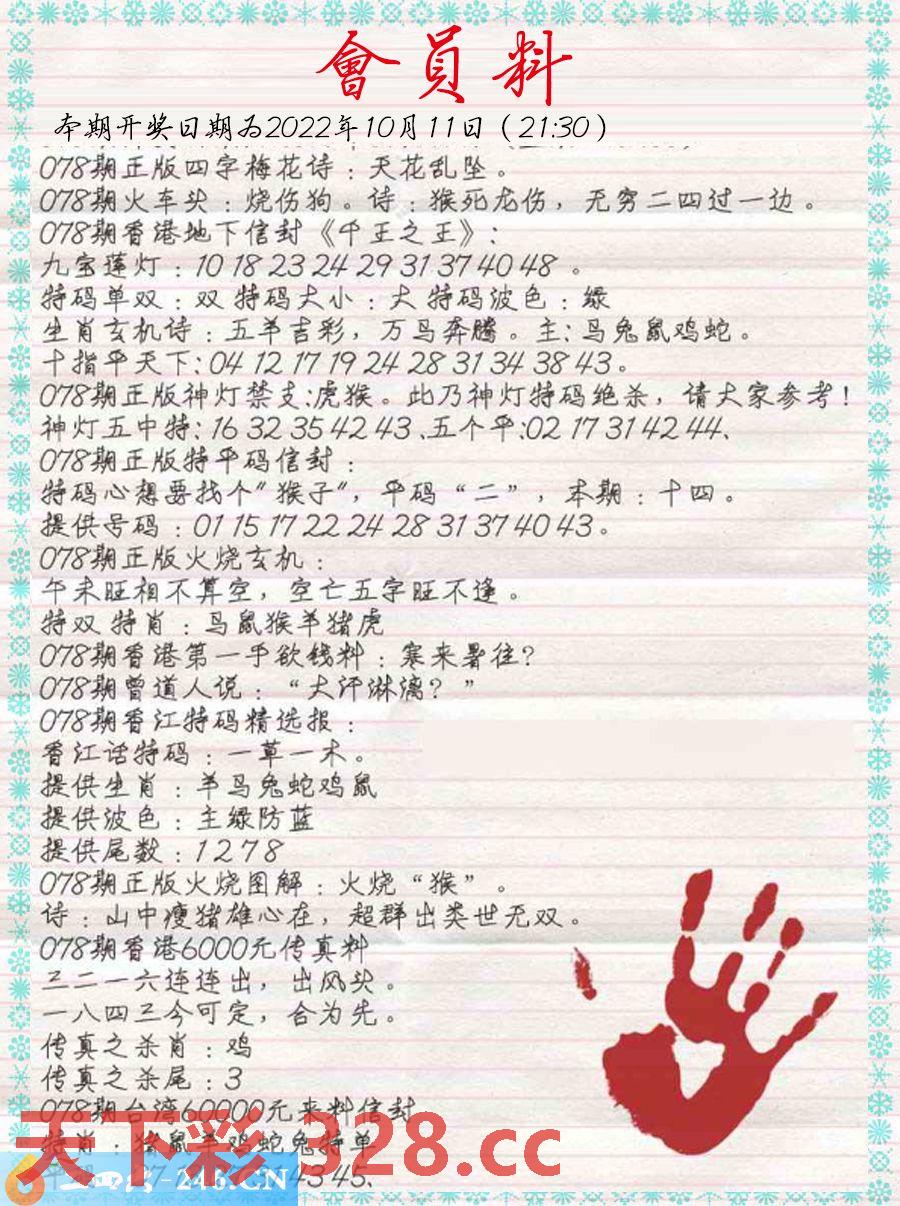 會員料
本期开奖日期为2022年10月11日（21:30）
078期正版四字梅花诗：天花乱坠。
078期火车头：烧伤狗。诗：猴死龙伤，无穷二四过一边。
078期香港地下信封《千王之王》：
九宝莲灯：10 18 23 24 29 31 37 40 48 。
特码单双：双 特码大小：大 特码波色：绿
生肖玄机诗：五羊吉彩，万马奔腾。主：马兔鼠鸡蛇。
十指平天下：04 12 17 19 24 28 31 34 38 43。
078期正版神灯禁支：虎猴。此乃神灯特码绝杀，请大家参考！
神灯五中特：16 32 35 42 43 、五个平：02 17 31 42 44、
078期正版特平码信封：
特码心想要找个“猴子”，平码“二”，本期：十四。
提供号码：01 15 17 22 24 28 31 37 40 43。
078期正版火烧玄机：
午未旺相不算空，空亡五字旺不逢。
特双 特肖：马鼠猴羊猪虎
078期香港第一手欲钱料：寒来暑往？
078期曾道人说：“大汗淋漓？”
078期香江特码精选报：
香江话特码：一草一木。
提供生肖：羊马兔蛇鸡鼠
提供波色：主绿防蓝
提供尾数：1 2 7 8
078期正版火烧图解：火烧“猴”。
诗：山中瘦猪雄心在，超群出类世无双。
078期香港6000元传真料
三二一六连连出，出风头。
一八四三今可定，合为先。
传真之杀肖：鸡
传真之杀尾：3
078期台湾60000元来料信封
特肖：猪鼠羊鸡蛇兔特单
43 45、
天下彩328.cc
-246.CN